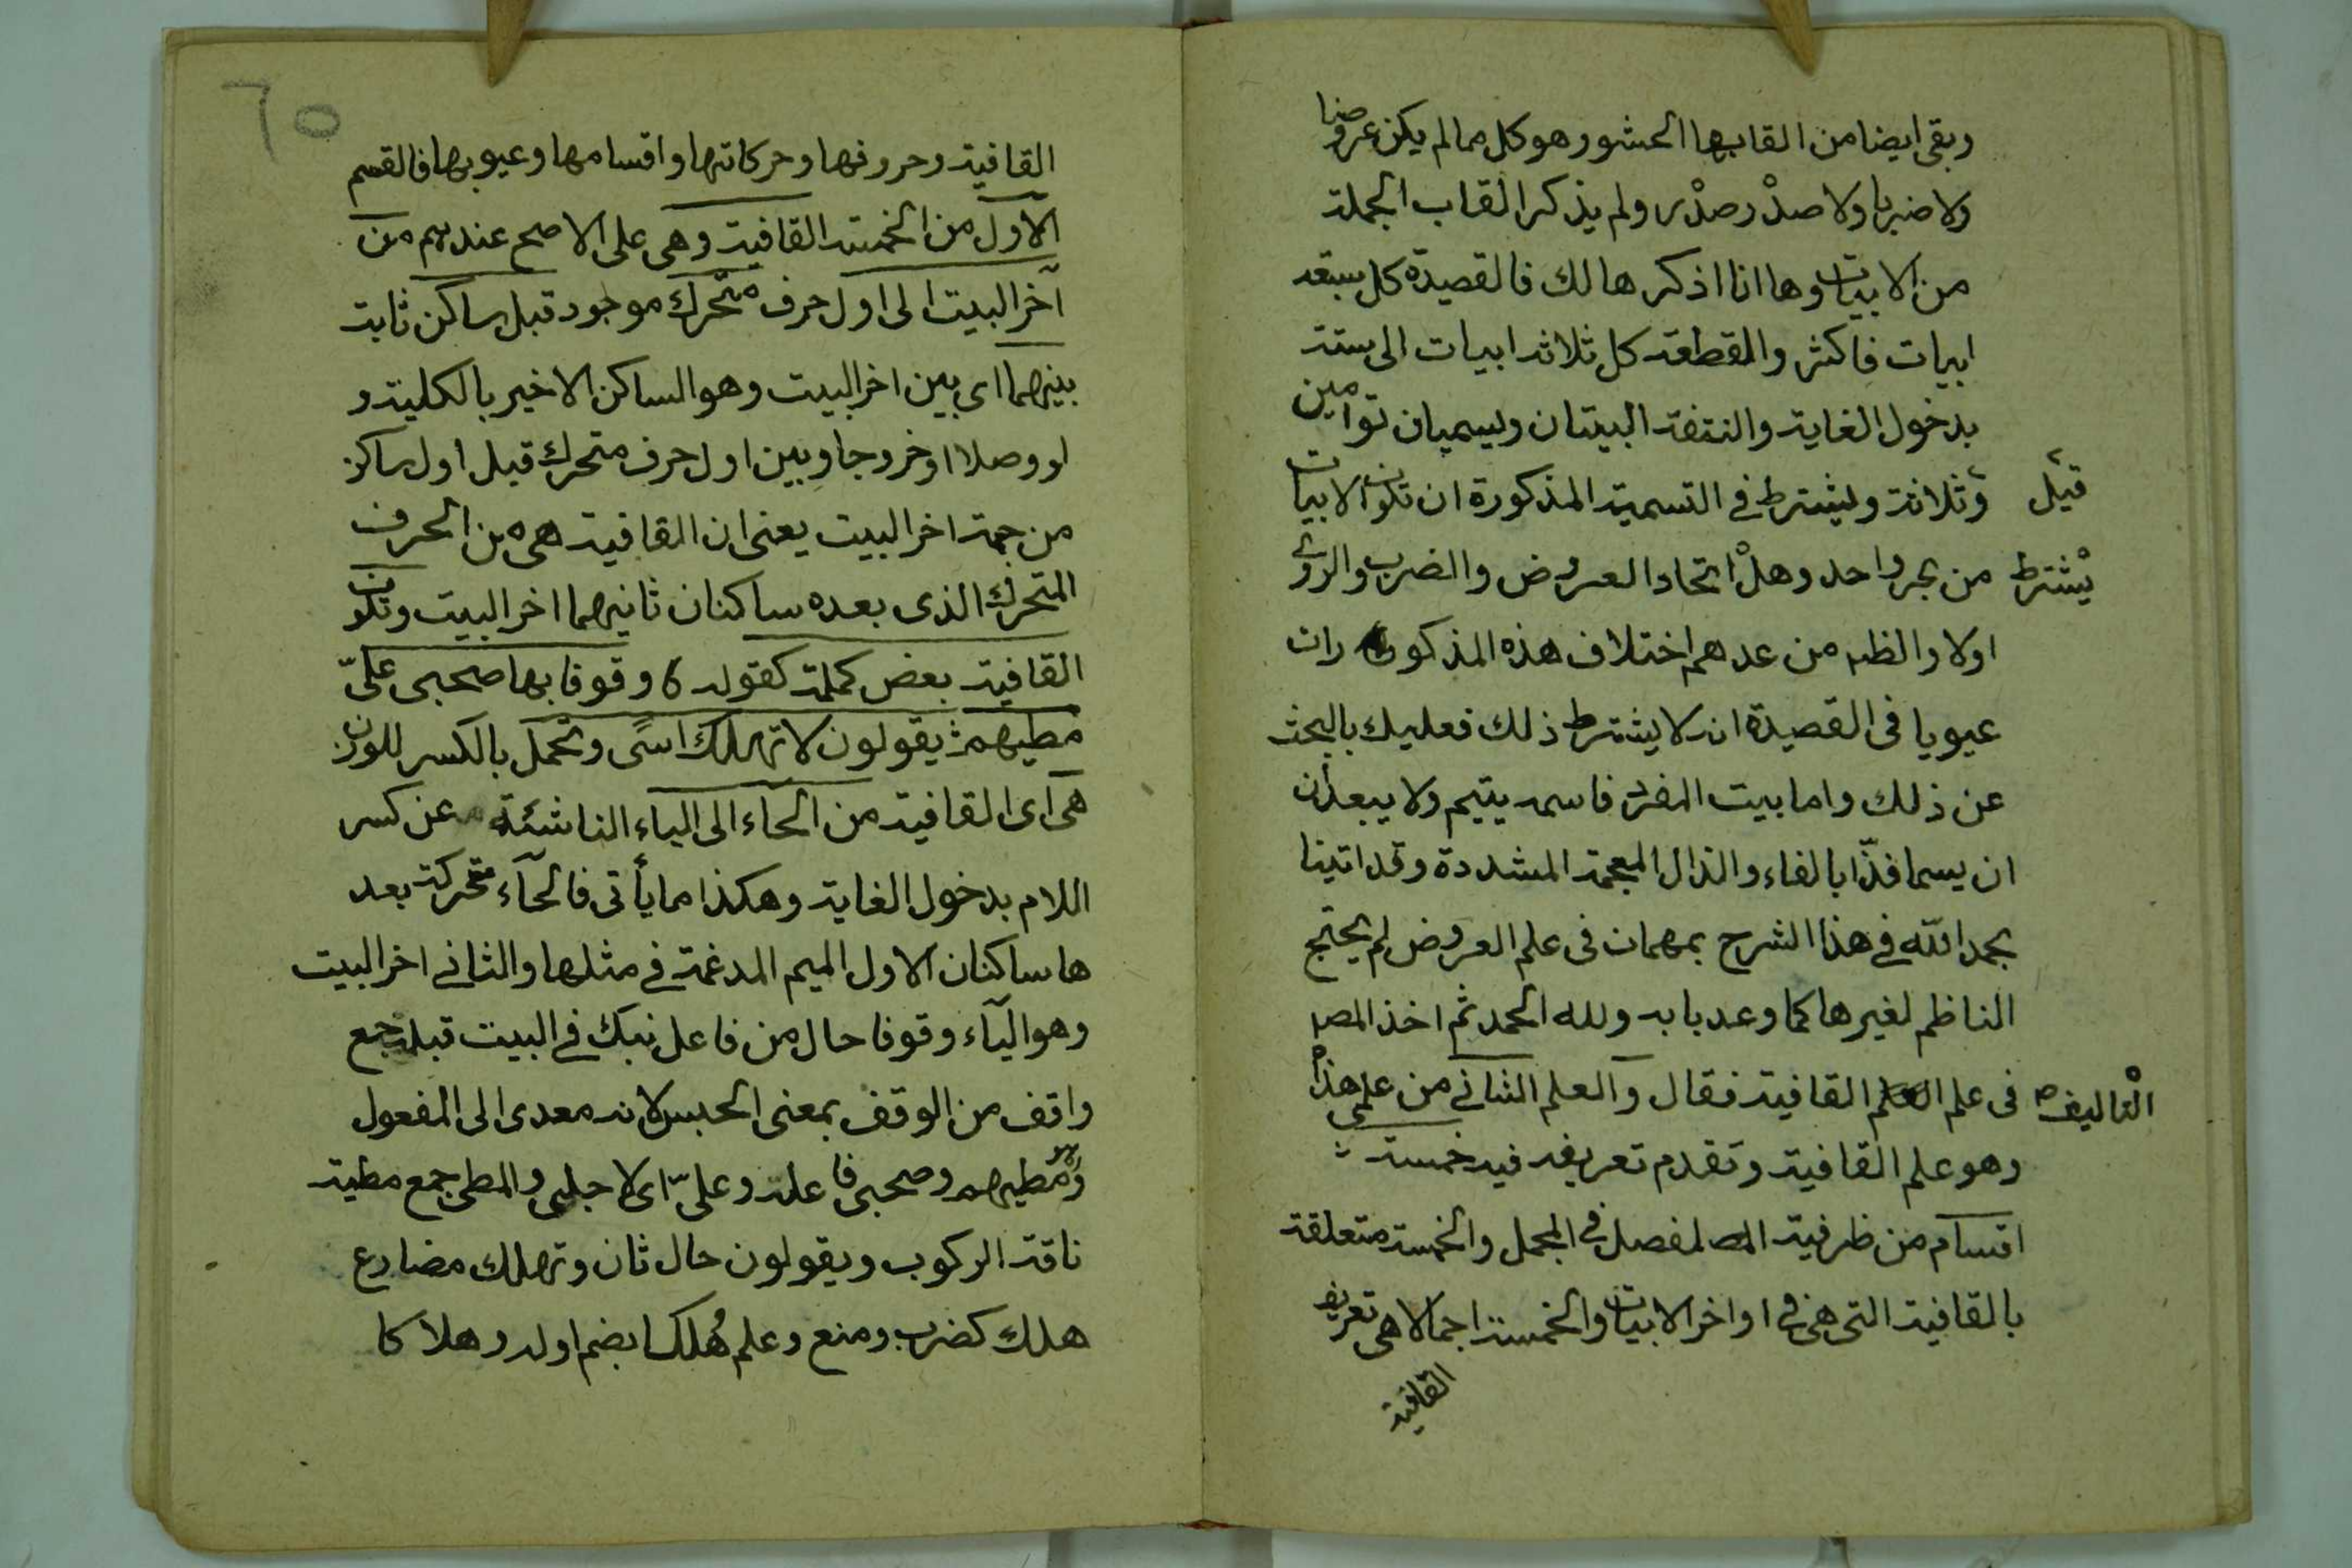 وبقى ايضا من القابها الحشو وهو كل مما لم يكن عروضا
ولا ضربا ولا صدْر صدْرى ولم يذكر القاب الجملة
من الابيات وها انا اذكرها لك فالقصيدة كل سبعة
ابيات فاكثر والمقطعة كل ثلاثة ابيات الى ستة
بدخول الغاية والنتفة البيتان ويسميان توامين
قيل وثلاثة ويشترط في التسمية المذكورة ان تكون الابيات
يشترط من بحر واحد وهلْ اتحاد العروض والضرب والروى
اولا والظه من عدهم اختلاف هذه المذكورات
عيوبا فى القصيدة انه لا يشترط ذلك فعليك بالبحث
عن ذلك واما بيت المفرد فاسمه يتيم ولا يبعد ان
ان يسما فذّا بالفاء والذال المعجمة المشددة وقد اتينا
بحمد الله في هذا الشرح بمهمات فى علم العروض لم يحتج
الناظم لغيرها كما وعد بابه ولله الحمد ثم اخذ المصه
التاليف فى علم القافية فقال والعلم الثانى من علمى هذا
وهو علم القافية وتقدم تعريفه فيه خمسة
اقسام من ظرفية المصه لمفصل فى المجمل والخمسة متعلقة
بالقافية التى هى فى اواخر الابيات والخمسة اجمالا هى تعريف
القافية
٦٥
القافية وحروفها وحركاتها واقسامها وعيوبها فالقسم
الاول من الخمسة القافية وهى على الاصح عندهم من
آخر البيت الى اول حرف متحرك موجود قبل ساكن ثابت
بينهما اى بين اخر البيت وهو الساكن الاخير بالكلية و
لو وصلا او خروجا وبين اول حرف متحرك قبل اول ساكن
من جهة اخر البيت يعنى ان القافية هى من الحرف
المتحرك الذى بعده ساكنان ثانيهما اخر البيت وتكون
القافية بعض كلمة كقوله وقوفا بها صحبى علىّ
مطيهم يقولون لا تهلك اسًى وتحمل بالكسر للوزن
هى اى القافية من الحاء الى الياء الناشئة عن كسر
اللام بدخول الغاية وهكذا مما يأتى فالحآء متحركة بعد
ها ساكنان الاول الميم المدغمة في مثلها والثانى اخر البيت
وهو اليآء وقوفا حال من فاعل نبك في البيت قبله جمع
واقف من الوقف بمعنى الحبس لانه معدى الى المفعول
وهو مطيهم وصحبى فاعله وعلىّ اى لاجلى والمطى جمع مطية
ناقة الركوب ويقولون حال ثان وتهلك مضارع
هلك كضرب ومنع وعلم هُلكا بضم اوله وهلاكا